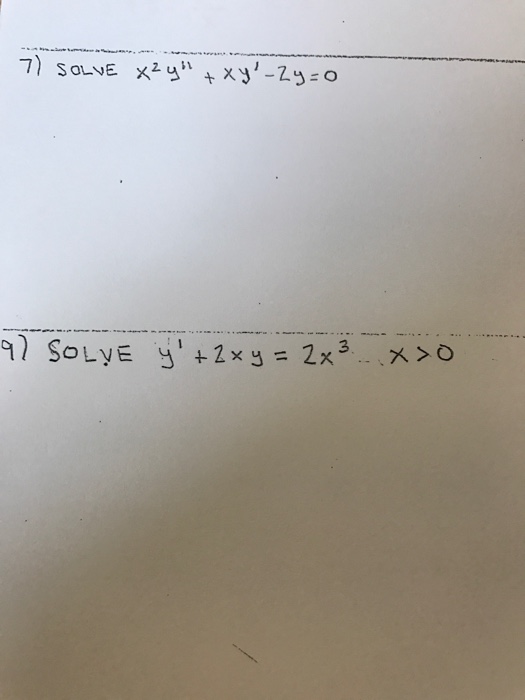 7) SOLVE x² y'' + xy' - 2y = 0
9) SOLVE y' + 2xy = 2x³ ... x > 0